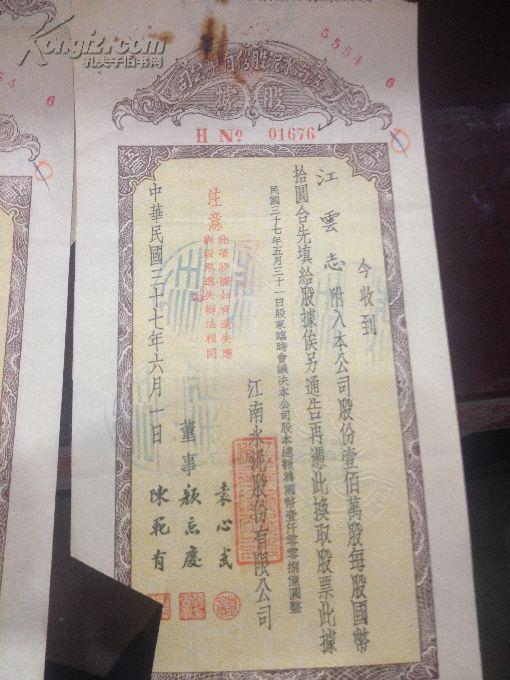 Kongfz.com
孔夫子旧书网
5554
6
6
江南水泥股份有限公司
股據
H No 01676
今收到
江雲志附入本公司股份壹佰萬股每股國幣
拾圓合先填給股據俟另通告再憑此換取股票此據
民國三十七年五月三十一日股東臨時會議決本公司股本總額為國幣壹仟零零捌億圓整
江南水泥股份有限公司
袁心武
董事 顏惠慶
陳範有
注意 此項股據如有遺失應
與股票遺失辦法相同
中華民國三十七年六月一日